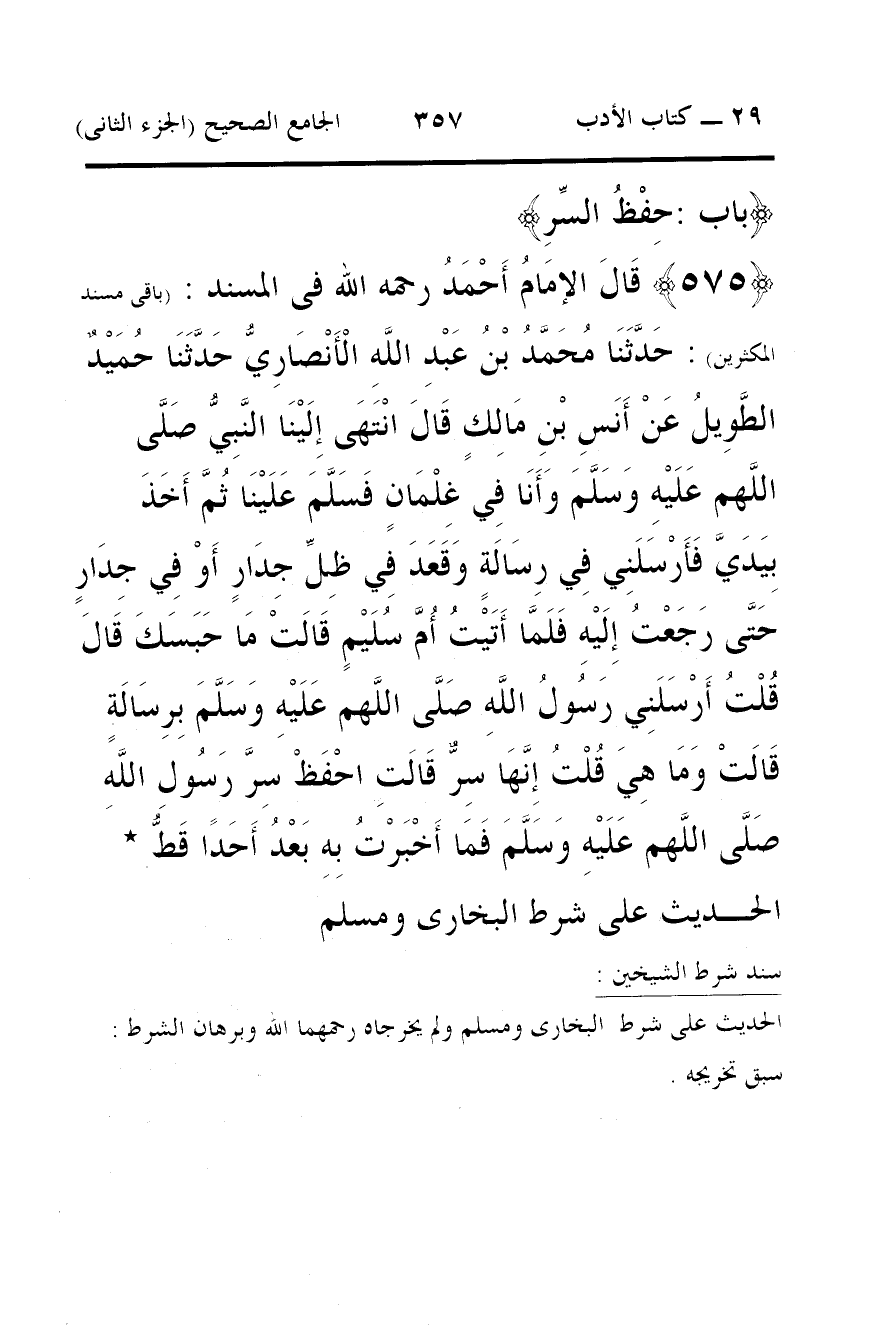 ٢٩ ــ كتاب الأدب ٣٥٧ الجامع الصحيح (الجزء الثانى)
﴿باب :حِفْظُ السِّرِ﴾
﴿٥٧٥﴾ قَالَ الإمَامُ أَحْمَدُ رحمه الله فى المسند : (باقى مسند
المكثرين) : حَدَّثَنَا مُحَمَّدُ بْنُ عَبْدِ اللَّهِ الْأَنْصَارِيُّ حَدَّثَنَا حُمَيْدٌ
الطَّوِيلُ عَنْ أَنَسِ بْنِ مَالِكٍ قَالَ انْتَهَى إِلَيْنَا النَّبِيُّ صَلَّى
اللَّهم عَلَيْهِ وَسَلَّمَ وَأَنَا فِي غِلْمَانٍ فَسَلَّمَ عَلَيْنَا ثُمَّ أَخَذَ
بِيَدَيَّ فَأَرْسَلَنِي فِي رِسَالَةٍ وَقَعَدَ فِي ظِلِّ جِدَارٍ أَوْ فِي جِدَارٍ
حَتَّى رَجَعْتُ إِلَيْهِ فَلَمَّا أَتَيْتُ أُمَّ سُلَيْمٍ قَالَتْ مَا حَبَسَكَ قَالَ
قُلْتُ أَرْسَلَنِي رَسُولُ اللَّهِ صَلَّى اللَّهم عَلَيْهِ وَسَلَّمَ بِرِسَالَةٍ
قَالَتْ وَمَا هِيَ قُلْتُ إِنَّهَا سِرٌّ قَالَتِ احْفَظْ سِرَّ رَسُولِ اللَّهِ
صَلَّى اللَّهم عَلَيْهِ وَسَلَّمَ فَمَا أَخْبَرْتُ بِهِ بَعْدُ أَحَدًا قَطُّ *
الحـــديث على شرط البخارى ومسلم
سند شرط الشيخين :
الحديث على شرط البخارى ومسلم ولم يخرجاه رحمهما الله وبرهان الشرط :
سبق تخريجه .